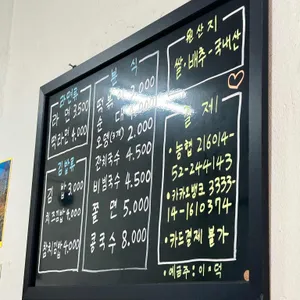 라면류
라면 3.500
떡라면 4.000
김밥류
김밥 3.000
치즈김밥
참치김밥 4.000
분식
3.000
순대 4.000
오뎅(3개) 2.000
잔치국수 4.500
비빔국수 4.500
쫄면 5.000
콩국수 8.000
원산지
쌀·배추-국내산
결제
·농협 216014-
52-244143
·카카오뱅크 3333-
14-1610374
·카드결제 불가
·예금주:이·덕